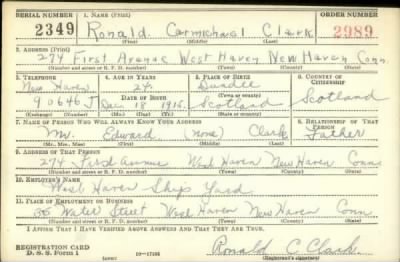 SERIAL NUMBER 1. NAME (Print) ORDER NUMBER
2349 Ronald Carmichael Clark 2989
(First) (Middle) (Last)
2. ADDRESS (Print)
274 First Avenue West Haven New Haven Conn.
(Number and street or R. F. D. number) (Town) (County) (State)
3. TELEPHONE 4. AGE IN YEARS 5. PLACE OF BIRTH 6. COUNTRY OF CITIZENSHIP
New Haven 24 Dundee
DATE OF BIRTH (Town or county)
90646J 18 1915 Scotland Scotland
(Exchange) (Number) (Mo.) (Day) (Yr.) (State or country)
7. NAME OF PERSON WHO WILL ALWAYS KNOW YOUR ADDRESS 8. RELATIONSHIP OF THAT PERSON
Mr. Edward (none) Clark Father
(Mr., Mrs., Miss) (First) (Middle) (Last)
9. ADDRESS OF THAT PERSON
274 First Avenue West Haven New Haven Conn
(Number and street or R. F. D. number) (Town) (County) (State)
10. EMPLOYER'S NAME
West Haven Ship Yard
11. PLACE OF EMPLOYMENT OR BUSINESS
Water Street West Haven New Haven Conn
(Number and street or R. F. D. number) (Town) (County) (State)
I AFFIRM THAT I HAVE VERIFIED ABOVE ANSWERS AND THAT THEY ARE TRUE.
REGISTRATION CARD
D. S. S. Form 1 (over) Ronald C Clark
(Registrant's signature)